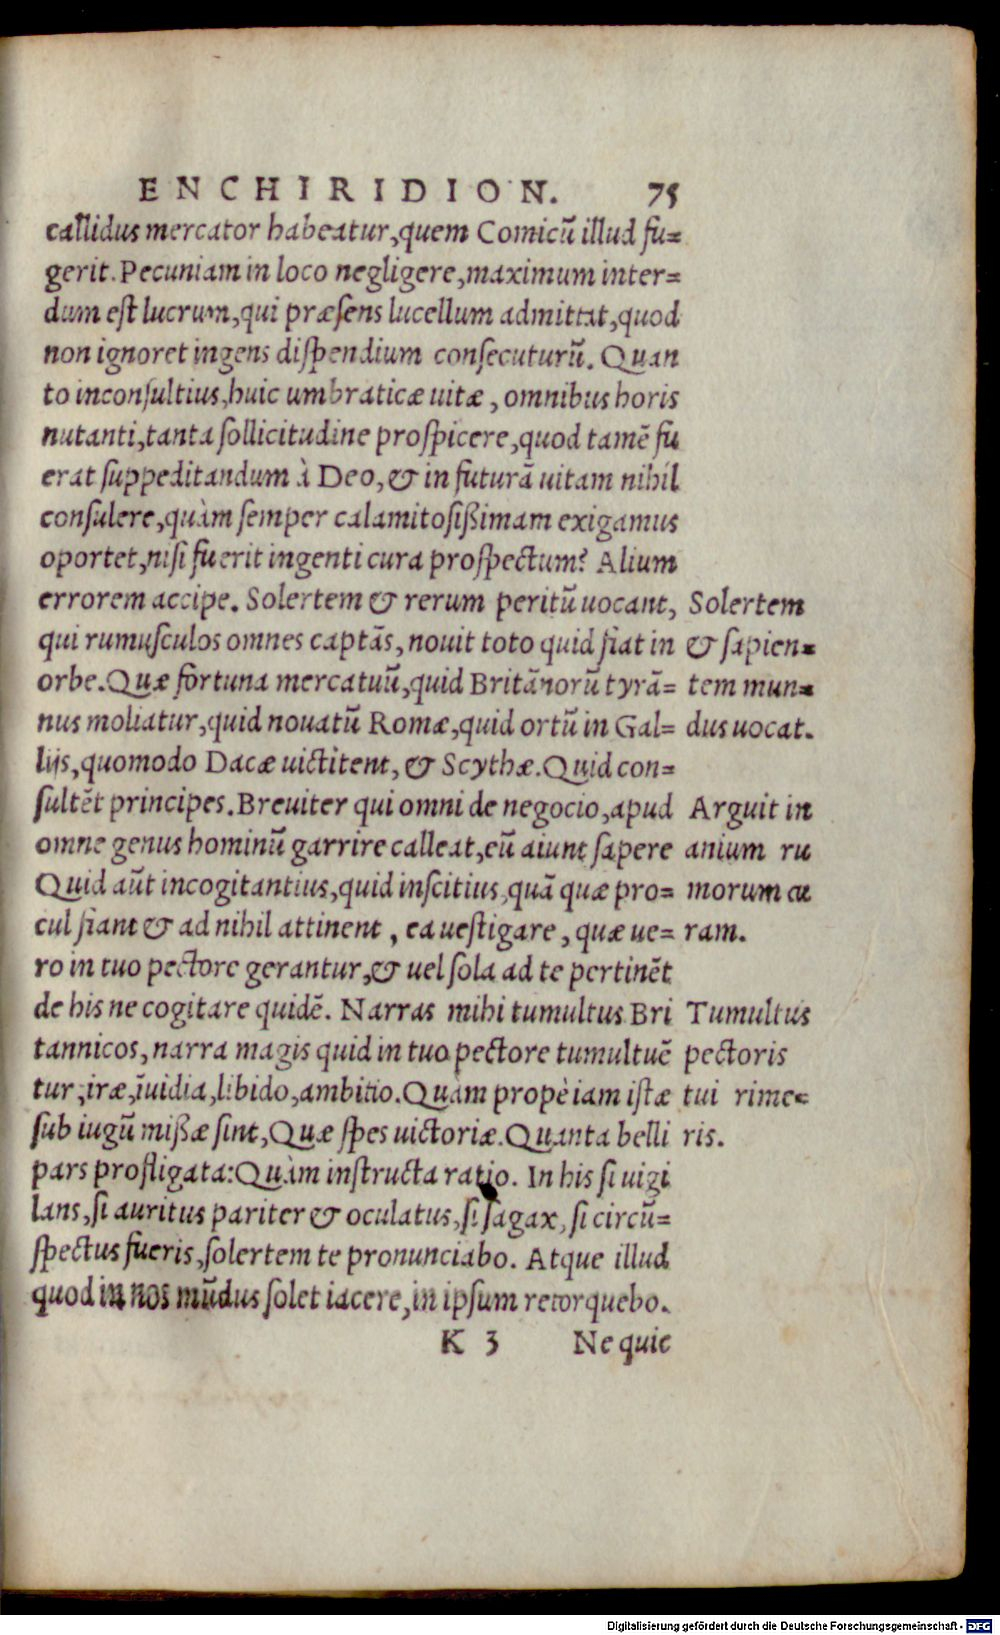 ENCHIRIDION. 75
callidus mercator habeatur, quem Comicũ illud fu=
gerit. Pecuniam in loco negligere, maximum inter=
dum est lucrum, qui præsens lucellum admittat, quod
non ignoret ingens dispendium consecuturũ. Quan
to inconsultius, huic umbraticæ uitæ, omnibus horis
nutanti, tanta sollicitudine prospicere, quod tamẽ fu
erat suppeditandum à Deo, & in futurã uitam nihil
consulere, quàm semper calamitosißimam exigamus
oportet, nisi fuerit ingenti cura prospectum? Alium
errorem accipe. Solertem & rerum peritũ uocant,
qui rumusculos omnes captãs, nouit toto quid fiat in
orbe. Quæ fortuna mercatuũ, quid Britãnorũ tyrã=
nus moliatur, quid nouatũ Romæ, quid ortũ in Gal=
lijs, quomodo Dacæ uictitent, & Scythæ. Quid con=
sultẽt principes. Breuiter qui omni de negocio, apud
omne genus hominũ garrire calleat, eũ aiunt sapere
Quid aũt incogitantius, quid inscitius, quã quæ pro=
cul fiant & ad nihil attinent, ea uestigare, quæ ue=
ro in tuo pectore gerantur, & uel sola ad te pertinẽt
de his ne cogitare quidẽ. Narras mihi tumultus Bri
tannicos, narra magis quid in tuo pectore tumultuẽ
tur, iræ, ĩuidia, libido, ambitio. Quàm propè iam istæ
sub iugũ mißæ sint, Quæ spes uictoriæ. Quanta belli
pars profligata: Quàm instructa ratio. In his si uigi
lans, si auritus pariter & oculatus, si sagax, si circũ=
spectus fueris, solertem te pronunciabo. Atque illud
quod in nos mũdus solet iacere, in ipsum retorquebo.
K 3 Ne quic
Solertem
& sapien=
tem mun=
dus uocat.
Arguit in
anium ru
morum cu
ram.
Tumultus
pectoris
tui rime=
ris.
Digitalisierung gefördert durch die Deutsche Forschungsgemeinschaft - DFG